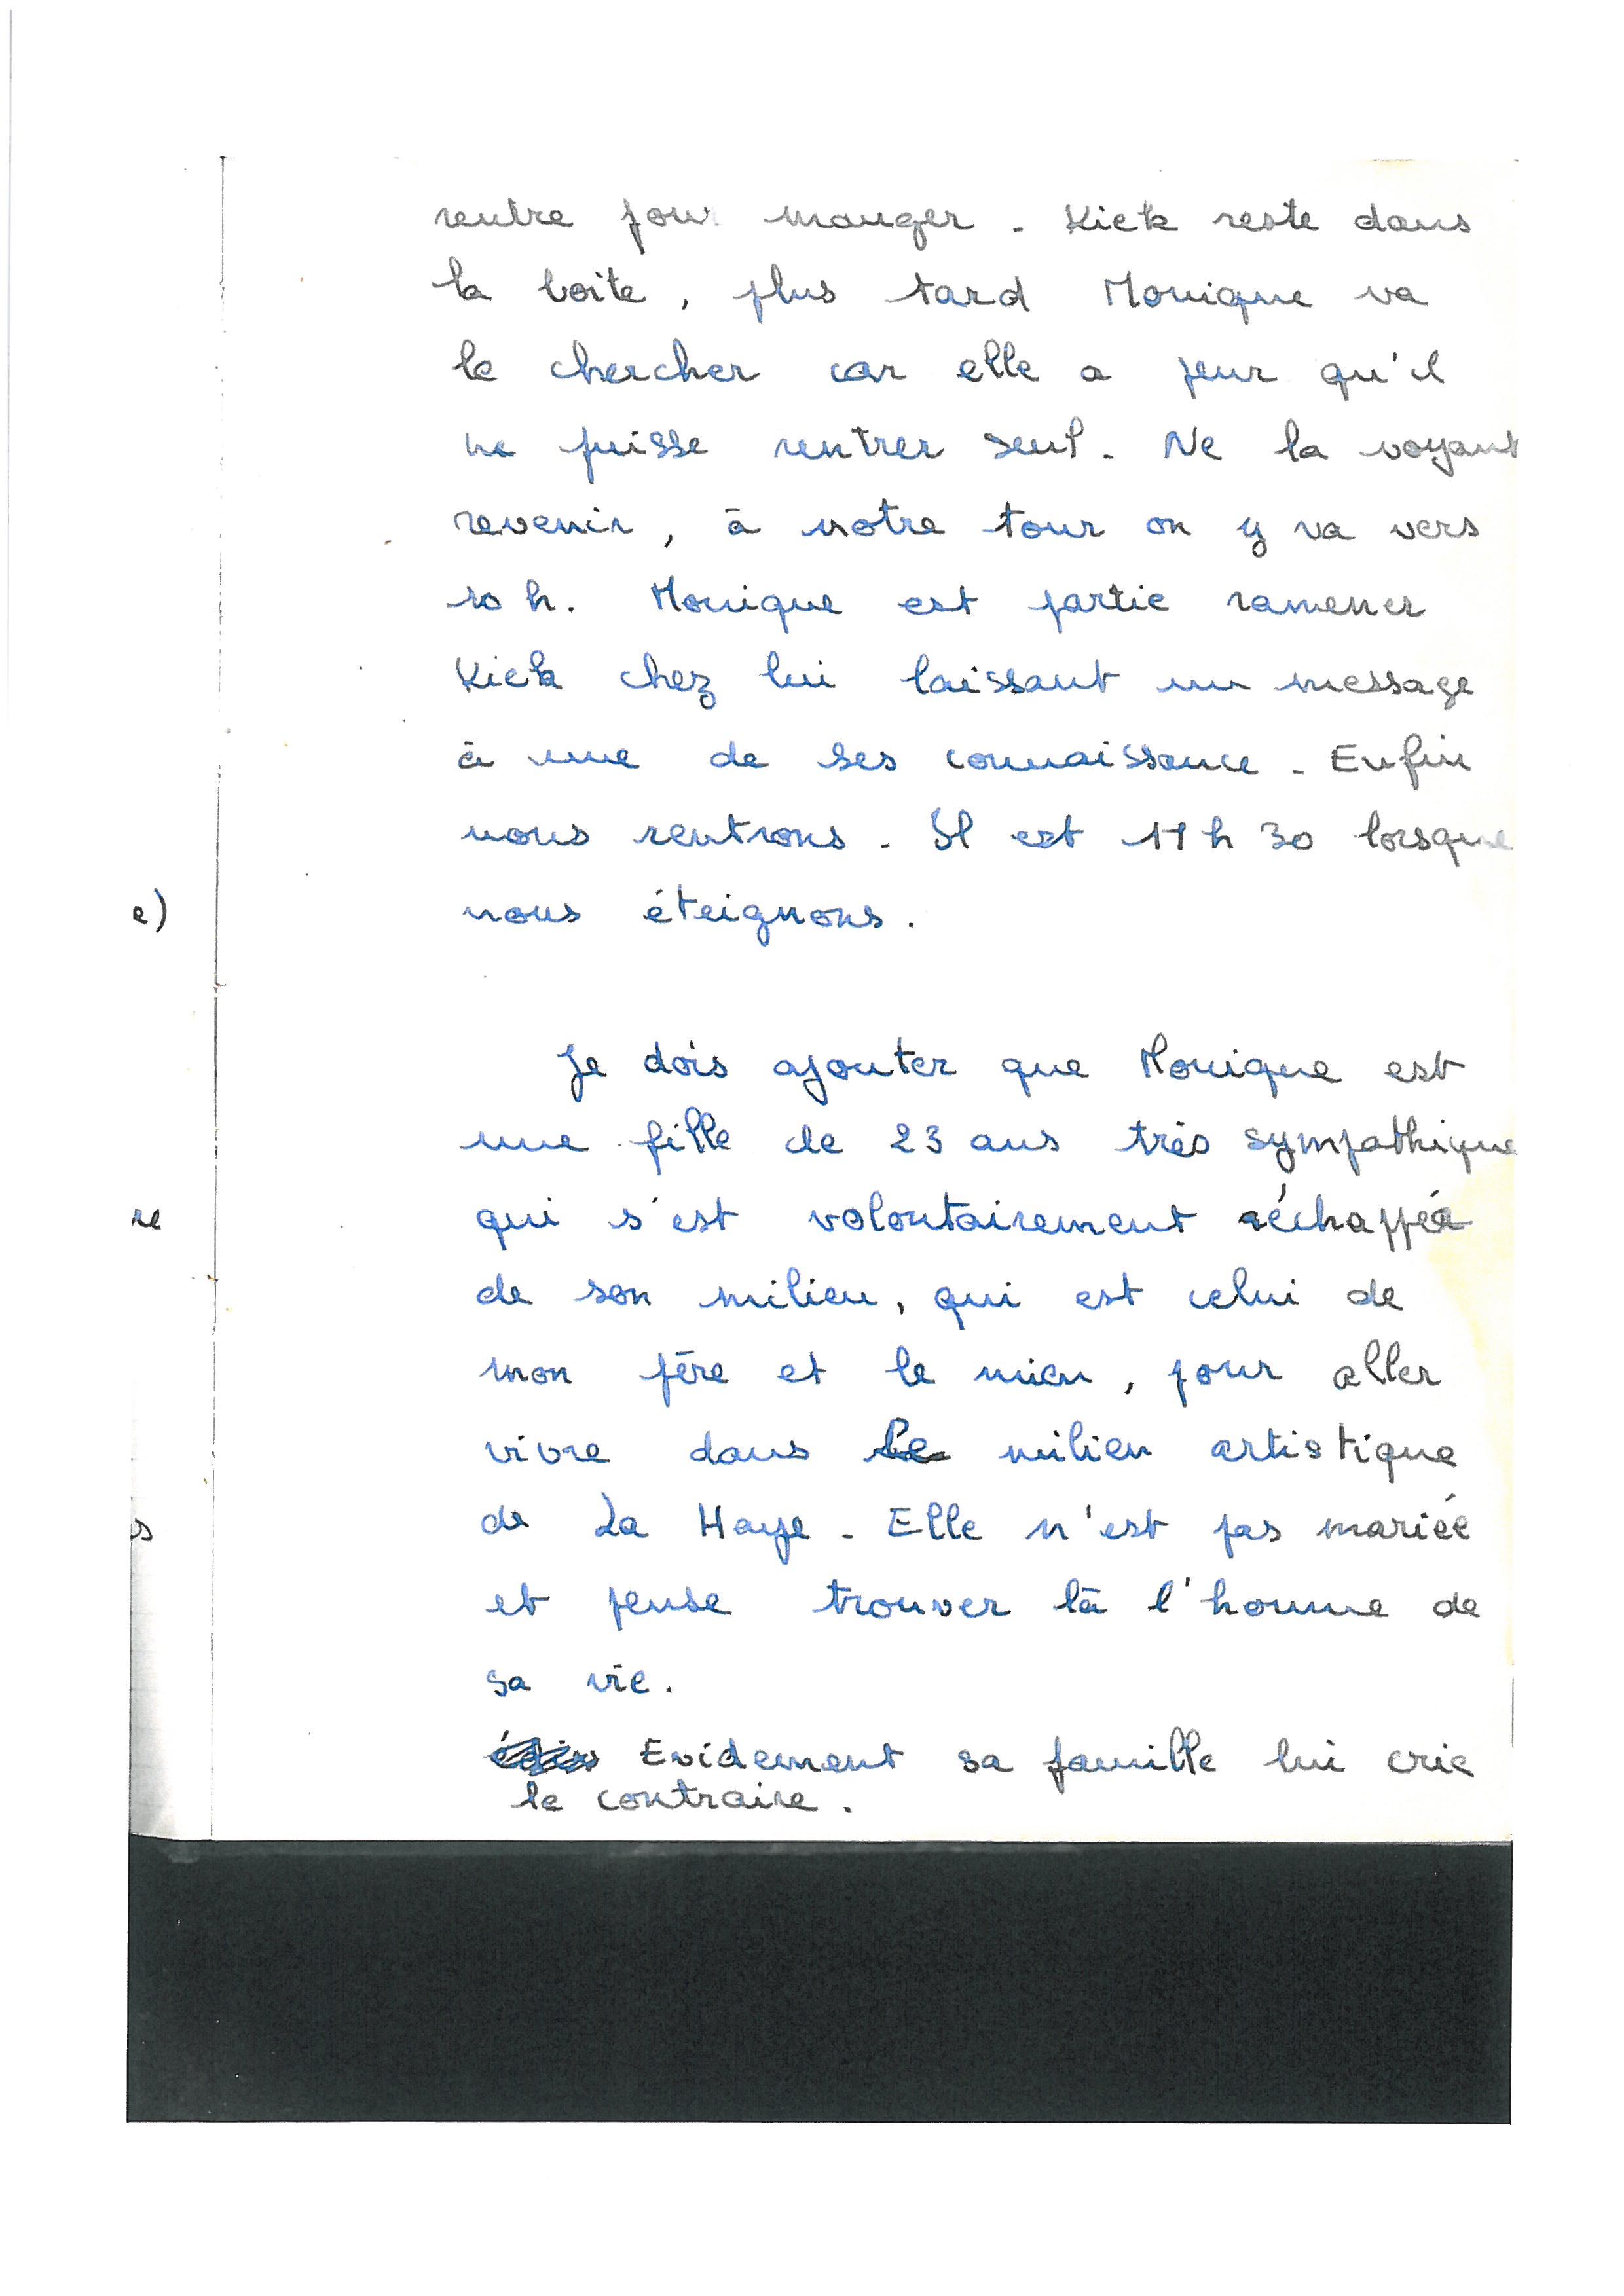 rentre pour manger. Kick reste dans
la boite, plus tard Monique va
le chercher car elle a peur qu'il
ne puisse rentrer seul. Ne la voyant
revenir, à notre tour on y va vers
10 h. Monique est partie ramener
Kick chez lui laissant un message
à une de ses connaissance. Enfin
nous rentrons. Il est 11 h 30 lorsque
e)
nous éteignons.
Je dois ajouter que Monique est
une fille de 23 ans très sympathique
re
qui s'est volontairement réchappée
de son milieu, qui est celui de
mon père et le mien, pour aller
vivre dans le milieu artistique
s
de La Haye. Elle n'est pas mariée
et pense trouver là l'homme de
sa vie.
Evidement sa famille lui crie
le contraire.